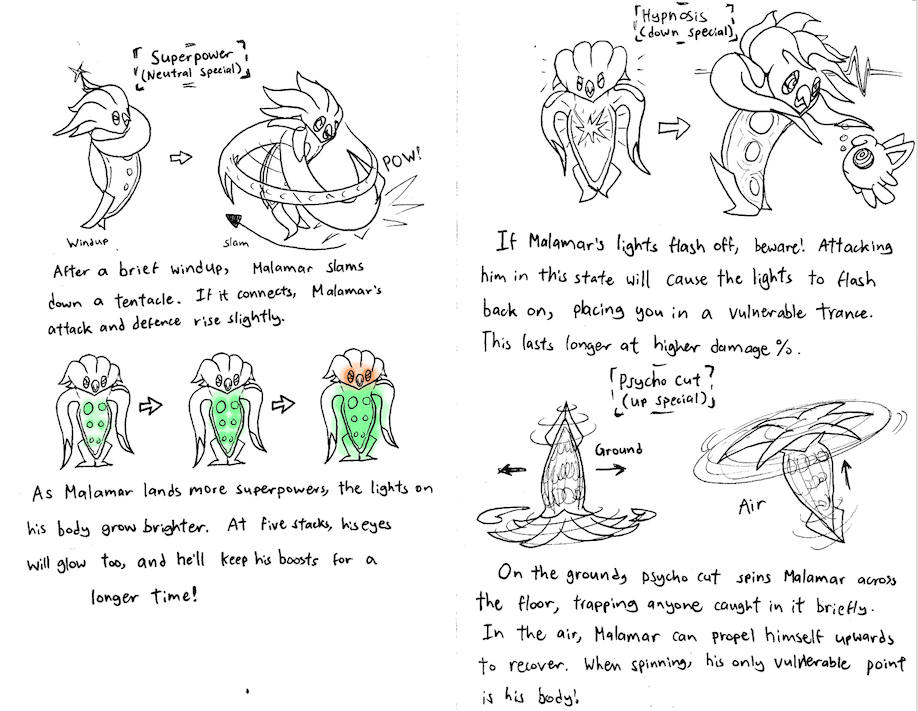 Superpower
(Neutral special)
POW!
Windup
slam
After a brief windup, Malamar slams
down a tentacle. If it connects, Malamar's
attack and defence rise slightly.
As Malamar lands more superpowers, the lights on
his body grow brighter. At five stacks, his eyes
will glow too, and he'll keep his boosts for a
longer time!
Hypnosis
(down special)
If Malamar's lights flash off, beware! Attacking
him in this state will cause the lights to flash
back on, placing you in a vulnerable trance.
This lasts longer at higher damage %.
Psycho cut
(up special)
Ground
Air
On the ground, psycho cut spins Malamar across
the floor, trapping anyone caught in it briefly.
In the air, Malamar can propel himself upwards
to recover. When spinning, his only vulnerable point
is his body!